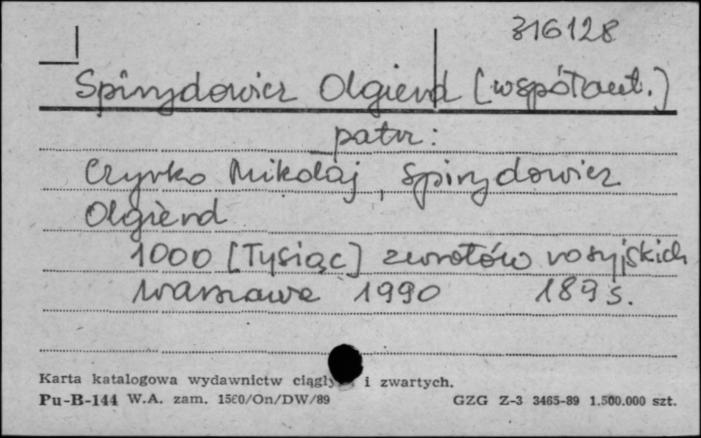 316128
Spirydowicz Olgierd [współaut.)
patrz:
Czyrko Mikołaj, Spirydowicz
Olgierd
1000 [Tysiąc] zwrotów rosyjskich
Warszawa 1990 189 s.
Karta katalogowa wydawnictw ciągły i zwartych.
Pu-B-144 W.A. zam. 1560/On/DW/89 GZG Z-3 3465-89 1.500.000 szt.